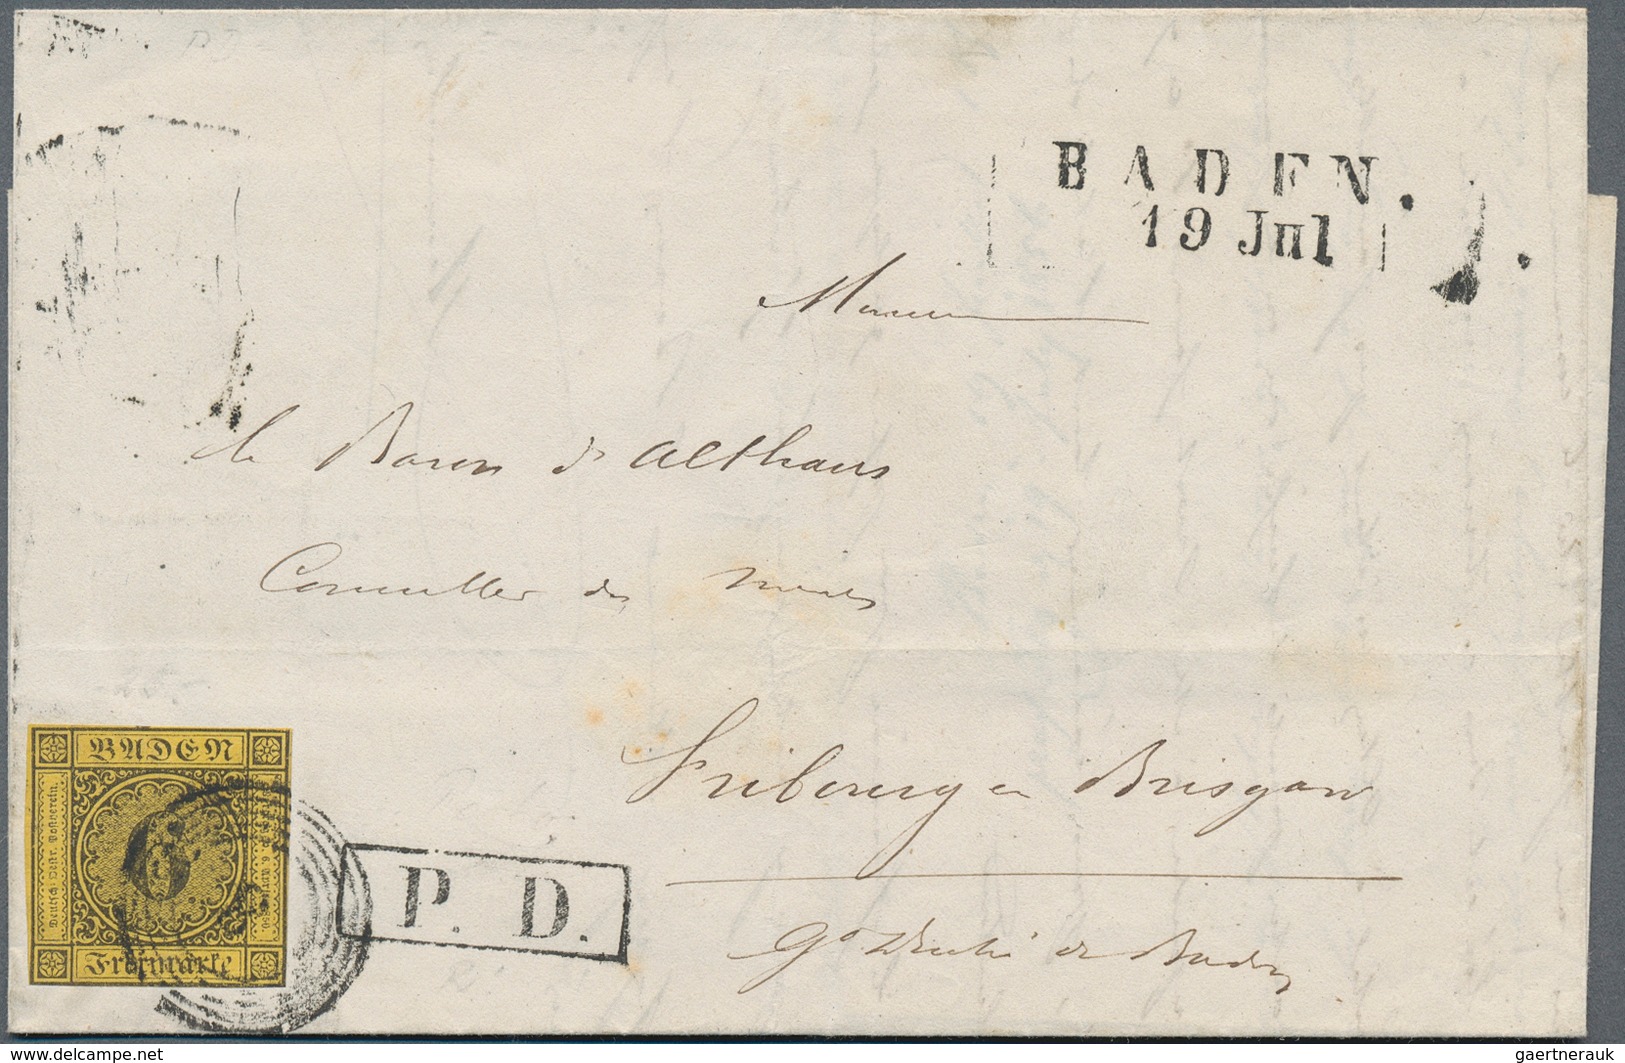 BADEN.
19 Jul
Monsieur
le Baron d'Althaus
Conseiller des mines
Fribourg en Brisgaw
Gd Duché de Baden
BADEN
Deutsch-Östr. Postverein.
6
Freimarke
P. D.
www.delcampe.net
gaertnerauk